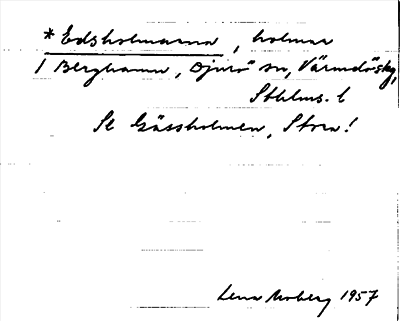 *Edsholmarna, holmar
/ Berghamn, Djurö sn, Värmdö skg,
Sthlms. l
Se Gåssholmen, Stora!
Lena Moberg 1957